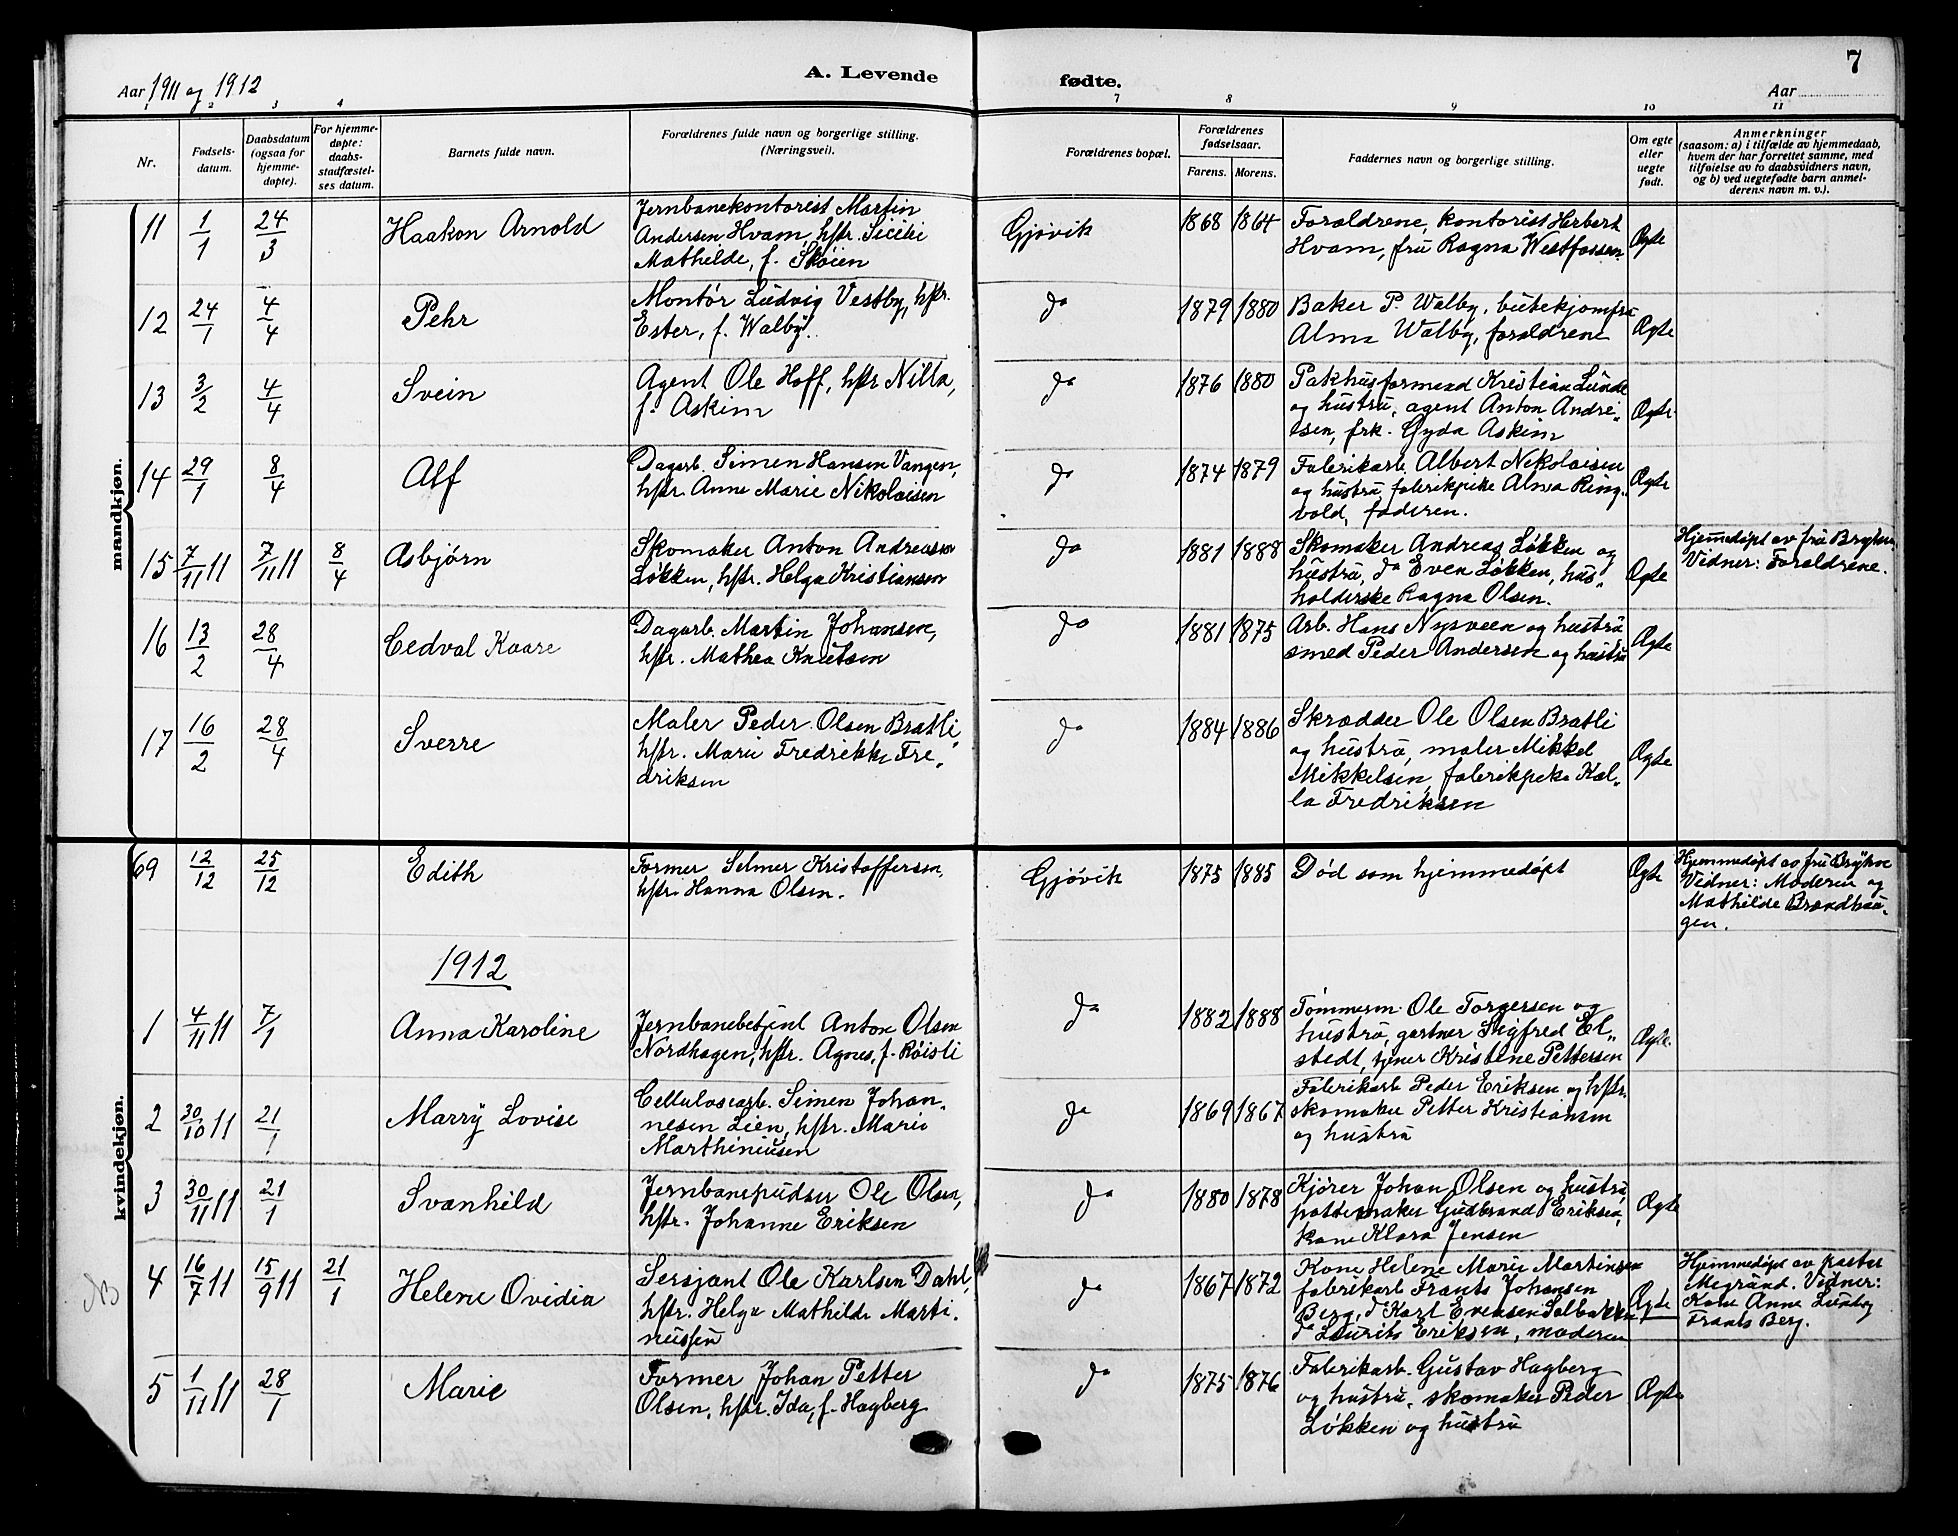 7
Aar 1911 og 1912
A. Levende fødte.
Aar
1 2 3 4 7 8 9 10 11
Nr.
Fødselsdatum.
Daabsdatum (ogsaa for hjemmedøpte).
For hjemmedøpte: daabsstadfæstelses datum.
Barnets fulde navn.
Forældrenes fulde navn og borgerlige stilling. (Næringsvei).
Forældrenes bopæl.
Forældrenes fødselsaar.
Farens. Morens.
Faddernes navn og borgerlige stilling.
Om egte eller uegte født.
Anmerkninger
(saasom: a) i tilfælde av hjemmedaab,
hvem der har forrettet samme, med
tilføielse av to daabsvidners navn,
og b) ved uegtefødte barn anmel-
derens navn m. v.).
mandkjøn.
11 1/1 24/3 Haakon Arnold
Jernbanekontorist Martin
Andersen Hvam, hstr. Sicilie
Mathilde, f. Skøien
Gjøvik 1868 1864
Forældrene, kontorist Herbert
Hvam, fru Ragna Westfossen
Ægte
12 24/1 4/4 Pehr
Montør Ludvig Vestby, hstr.
Ester, f. Walby.
do 1879 1880
Baker P. Walby, butikjomfru
Alma Walby, forældrene
Ægte
13 3/2 4/4 Svein
Agent Ole Hoff, hstr Nilla,
f. Askim
do 1876 1880
Pakhusformand Kristian Lunde
og hustru, agent Anton Andre-
esen, frk. Gyda Askim
Ægte
14 29/1 8/4 Alf
Dagarb. Simen Hansen Vangen,
hstr. Anne Marie Nikolaisen
do 1874 1879
Fabrikarb. Albert Nikolaisen
og hustru, fabrikpike Alma Ring-
vold, faderen.
Ægte
15 7/11 11 7/11 11 8/4 Asbjørn
Skomaker Anton Andreassen
Løkken, hstr. Helga Kristiansen
do 1881 1888
Skomaker Andreas Løkken og
hustru, do Even Løkken, hus-
holderske Ragna Olsen.
Ægte
Hjemmedøpt av fru Bryhn
Vidner: Forældrene.
16 13/2 28/4 Cedval Kaare
Dagarb. Martin Johansen,
hstr. Mathea Knutsen
do 1881 1875
Arb. Hans Nysveen og hustru
smed Peder Andersen og hustru
Ægte
17 16/2 28/4 Sverre
Maler Peder Olsen Bratli,
hstr. Marie Fredrikke Fre-
driksen
do 1884 1886
Skrædder Ole Olsen Bratli
og hustru, maler Mikkel
Mikkelsen, fabrikpike Kal-
la Fredriksen
Ægte
kvindekjøn.
69 12/12 25/12 Edith
Former Selmer Kristoffersen,
hstr. Hanna Olsen.
Gjøvik 1875 1885
Død som hjemmedøpt
Ægte
Hjemmedøpt av fru Bryhn
Vidner: Moderen og
Mathilde Brændhau-
gen.
1912
1 4/11 11 7/1 Anna Karoline
Jernbanebetjent Anton Olsen
Nordhagen, hstr. Agnes, f. Røisli
do 1882 1888
Tømmerm. Ole Torgersen og
hustru, gartner Sigfred El-
stedt, tjener Kristine Pettersen
Ægte
2 30/10 11 21/1 Marry Lovise
Cellulosearb. Simen Johan-
nesen Lien, hstr. Marie
Marthiniusen
do 1869 1867
Fabrikarb Peder Eriksen og hstr.
skomaker Petter Kristiansen
og hustru
3 30/11 11 21/1 Svanhild
Jernbanepudser Ole Olsen,
hstr. Johanne Eriksen
do 1880 1878
Kjører Johan Olsen og hustru,
pottemaker Gudbrand Eriksen,
kone Klara Jensen
Ægte
NB 4 16/7 11 15/9 11 21/1 Helene Ovidia
Sersjant Ole Karlsen Dahl,
hstr. Helga Mathilde Marti-
nussen
do 1867 1872
Kone Helene Marie Martinsen
fabrikarb Frants Johansen
Berg, do Karl Evensen Solbakken,
do Laurits Eriksen, moderen
Ægte
Hjemmedøpt av pastor
Megrund. Vidner:
Kone Anne Lundby
Frants Berg.
5 1/11 11 28/1 Marie
Former Johan Petter
Olsen, hstr. Ida, f. Hagberg
do 1875 1876
Fabrikarb. Gustav Hagberg
og hustru, skomaker Peder
Løkken og hustru
Ægte